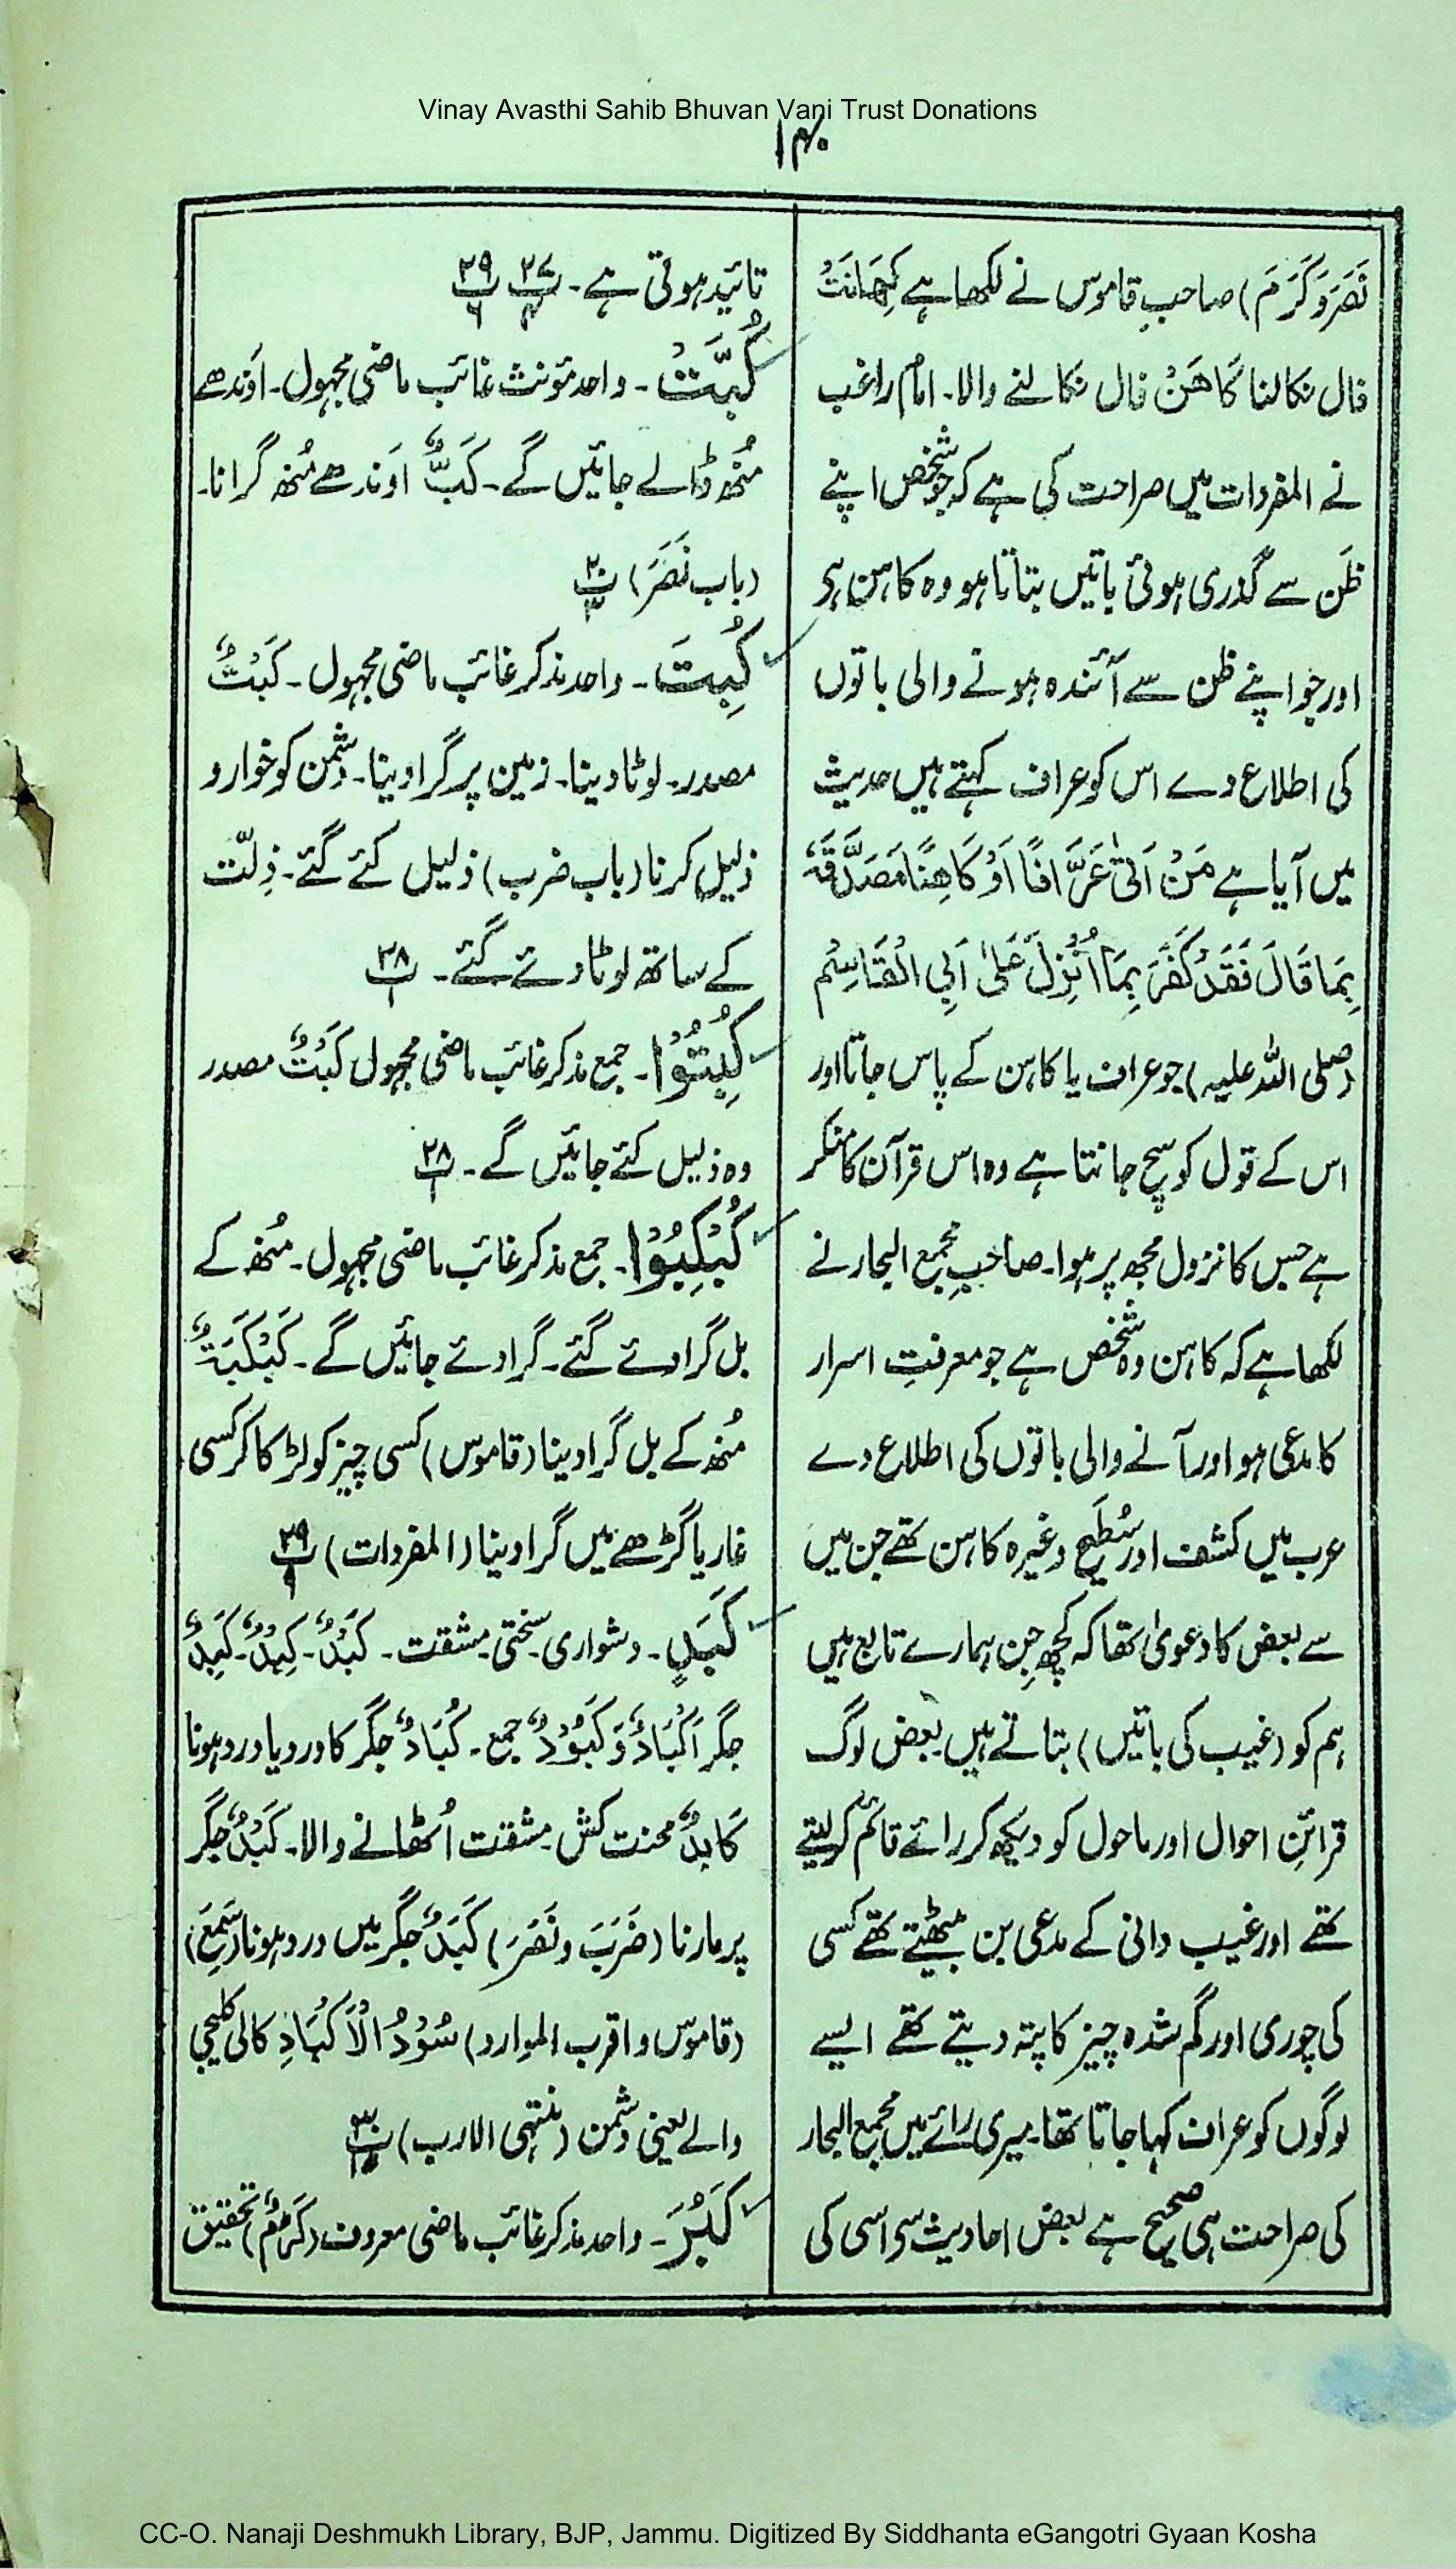 Vinay Avasthi Sahib Bhuvan Vani Trust Donations
۱۴۰
نَصَرَ وَکَرُمَ) صاحبِ قاموس نے لکھا ہے کِھَانَتُ
فال نکالنا کَاھَنْ فال نکالنے والا۔ امام راغب
نے المفردات میں صراحت کی ہے کہ جو شخص اپنے
ظَن سے گذری ہوئی باتیں بتاتا ہو وہ کاہن ہے
اور جو اپنے ظن سے آئندہ ہونے والی باتوں
کی اطلاع دے اس کو عراف کہتے ہیں حدیث
میں آیا ہے مَنْ اَتیٰ عَرَّافًا اَوْ کَاھِنًا فَصَدَّقَہٗ
بِمَا قَالَ فَقَدْ کَفَرَ بِمَا اُنْزِلَ عَلیٰ اَبِی الْقَاسِمْ
(صلی اللہ علیہ) جو عراف یا کاہن کے پاس جاتا اور
اس کے قول کو سچ جانتا ہے وہ اس قرآن کا منکر
ہے جس کا نزول مجھ پر ہوا۔ صاحبِ مجمع البحار نے
لکھا ہے کہ کاہن وہ شخص ہے جو معرفتِ اسرار
کا مدعی ہو اور آنے والی باتوں کی اطلاع دے
عرب میں کشف اور سُطَیح وغیرہ کاہن تھے جن میں
سے بعض کا دعویٰ تھا کہ کچھ جِن ہمارے تابع ہیں
ہم کو (غیب کی باتیں) بتاتے ہیں بعض لوگ
قرائنِ احوال اور ماحول کو دیکھ کر رائے قائم کر لیتے
تھے اور غیب دانی کے مدعی بن بیٹھتے تھے کسی
کی چوری اور گم شدہ چیز کا پتہ دیتے تھے ایسے
لوگوں کو عراف کہا جاتا تھا۔ میری رائے میں مجمع البحار
کی صراحت ہی صحیح ہے بعض احادیث سے اسی کی
تائید ہوتی ہے۔ پ۲۷ پ۲۹
کُبَّتْ۔ واحد مؤنث غائب ماضی مجہول۔ اَوندھے
مُنھ ڈالے جائیں گے۔ کَبٌّ اَوندھے مُنھ گرانا۔
(باب نَصَرَ) پ۲۰
کُبِتَ۔ واحد مذکر غائب ماضی مجہول۔ کَبْتٌ
مصدر۔ لوٹا دینا۔ زمین پر گرا دینا۔ دشمن کو خوار و
ذلیل کرنا (باب ضرب) ذلیل کئے گئے۔ ذِلّت
کے ساتھ لوٹا دئے گئے۔ پ۲۸
کُبِتُوْا۔ جمع مذکر غائب ماضی مجہول کَبْتٌ مصدر
وہ ذلیل کئے جائیں گے۔ پ۲۸
کُبْکِبُوْا۔ جمع مذکر غائب ماضی مجہول۔ مُنھ کے
بل گرا دئے گئے۔ گرا دئے جائیں گے۔ کَبْکَبَۃٌ
مُنھ کے بل گرا دینا (قاموس) کسی چیز کو لڑکا کر کسی
غار یا گڑھے میں گرا دینا (المفردات) پ۲۹
کَبَدٍ۔ دشواری۔ سختی۔ مشقت۔ کَبْدٌ۔ کِبْدٌ۔ کَبِدٌ
جگر اَکْبَادٌ وَکُبُوْدٌ جمع۔ کُبَادٌ جگر کا درد یا درد ہونا
کَابِدٌ محنت کش۔ مشقت اُٹھانے والا۔ کَبْدٌ جگر
پر مارنا (ضَرَبَ ونَصَرَ) کَبَدٌ جگر میں درد ہونا (سَمِعَ)
(قاموس و اقرب الموارد) سُوْدُ الْاَکْبَادِ کالی کلیجی
والے یعنی دشمن (منتہی الارب) پ۳۰
کَبُرَ۔ واحد مذکر غائب ماضی معروف (کَرُمَ) تحقیق
CC-O. Nanaji Deshmukh Library, BJP, Jammu. Digitized By Siddhanta eGangotri Gyaan Kosha